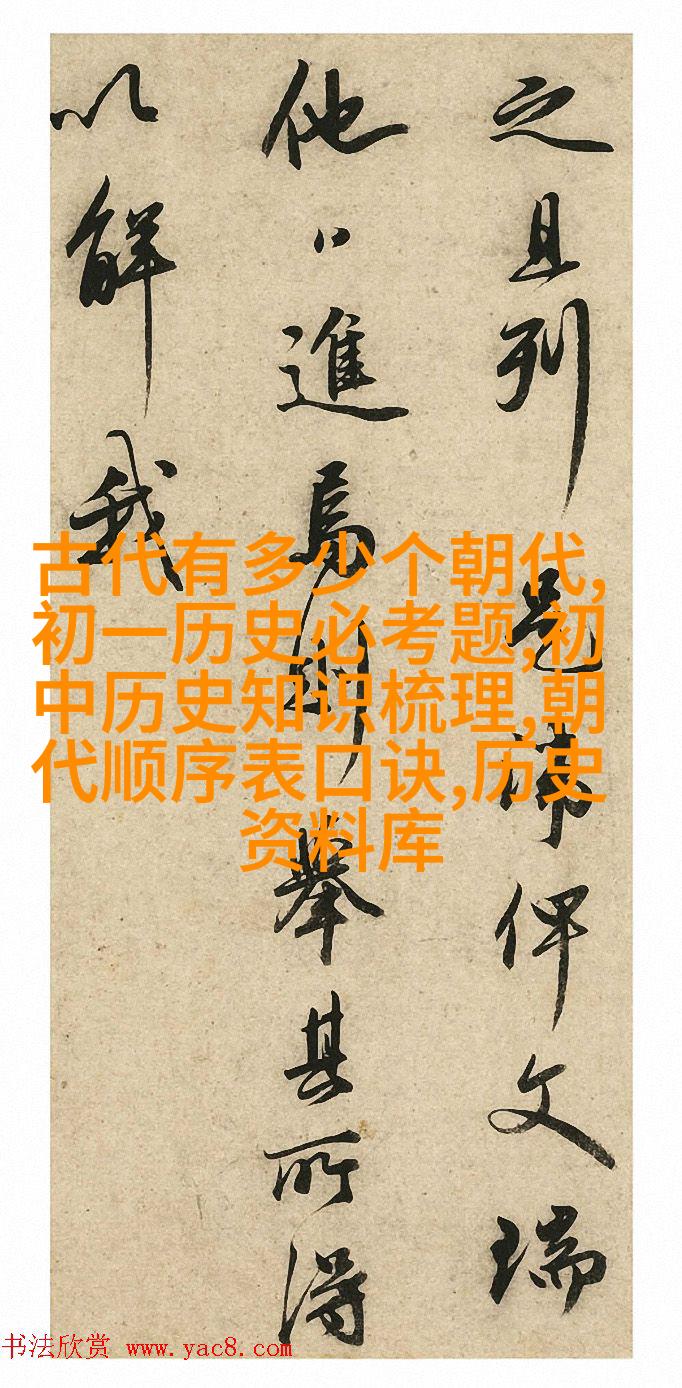 之且列
兄諱俾文瑞
他日進焉則舉其所得
以解我
古代有多少个朝代,
初一历史必考题,初
中历史知识梳理,朝
代顺序表口诀,历史
资料库
书法欣赏 www.yac8.com